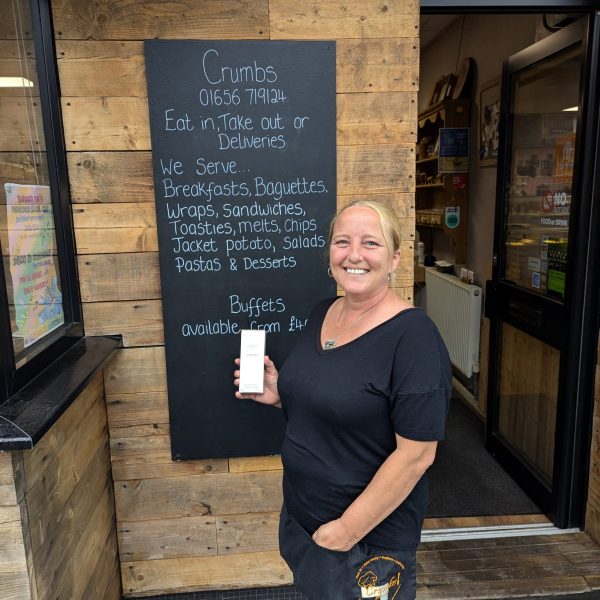 Crumbs
01656 719124
Eat in, Take out or
Deliveries
We Serve...
Breakfasts, Baguettes.
Wraps, Sandwiches,
Toasties, melts, Chips
Jacket potato, Salads
Pastas & Desserts
Buffets
available from £4
NO
FOOD or DRINK
Crumbs